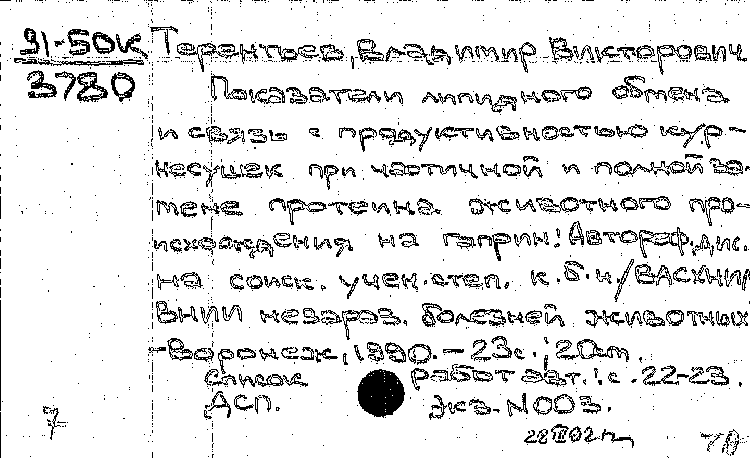 91-50К Терентьев, Владимир Викторович
3780 Показатели липидного обмена
и связь с продуктивностью кур-
несушек при частичной и полной за-
мене протеина животного про-
исхождения на гаприн: Автореф. дис.
на соиск. учен. степ. к.б.н./ВАСХНИЛ
ВНИИ незараз. болезней животных
-Воронеж, 1990.-23с.; 20см.
Список работ авт.: с. 22-23.
ДСП. Экз. N003.
7 28 III 02г